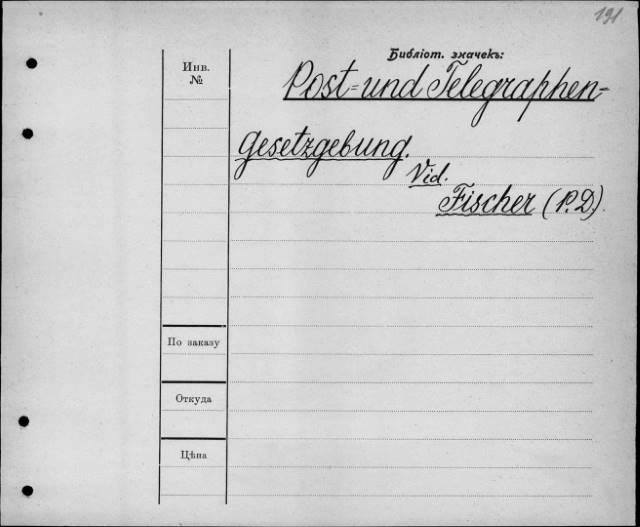 191
Библіот. значекъ:
Инв.
№
Post=und Telegraphen=
Gesetzgebung.
Vid.
Fischer (P.D.)
По заказу
Откуда
Цѣна